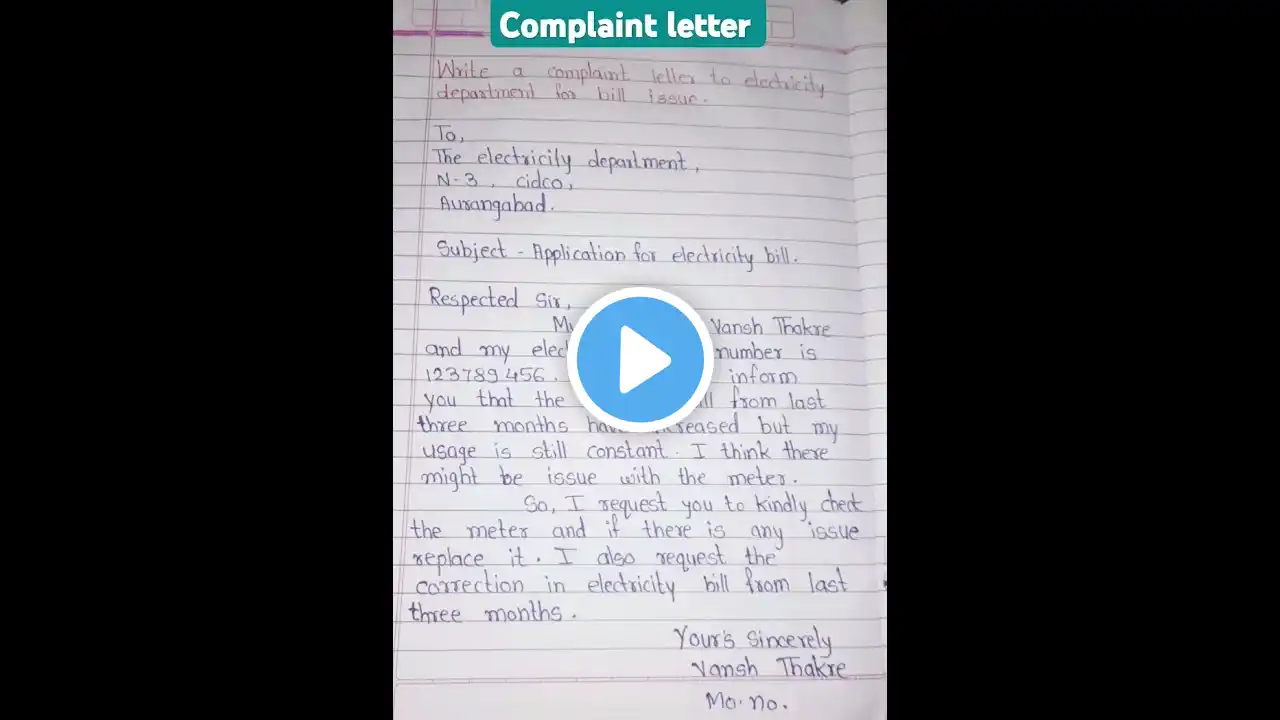 Complaint letter
Write a complaint letter to electricity
department for bill issue.
To,
The electricity department,
N-3, cidco,
Aurangabad.
Subject - Application for electricity bill.
Respected Sir,
Vansh Thakre
and my number is
123789456. inform
you that the from last
three months increased but my
usage is still constant. I think there
might be issue with the meter.
So, I request you to kindly check
the meter and if there is any issue
replace it. I also request the
correction in electricity bill from last
three months.
Your's Sincerely
Vansh Thakre
Mo. no.